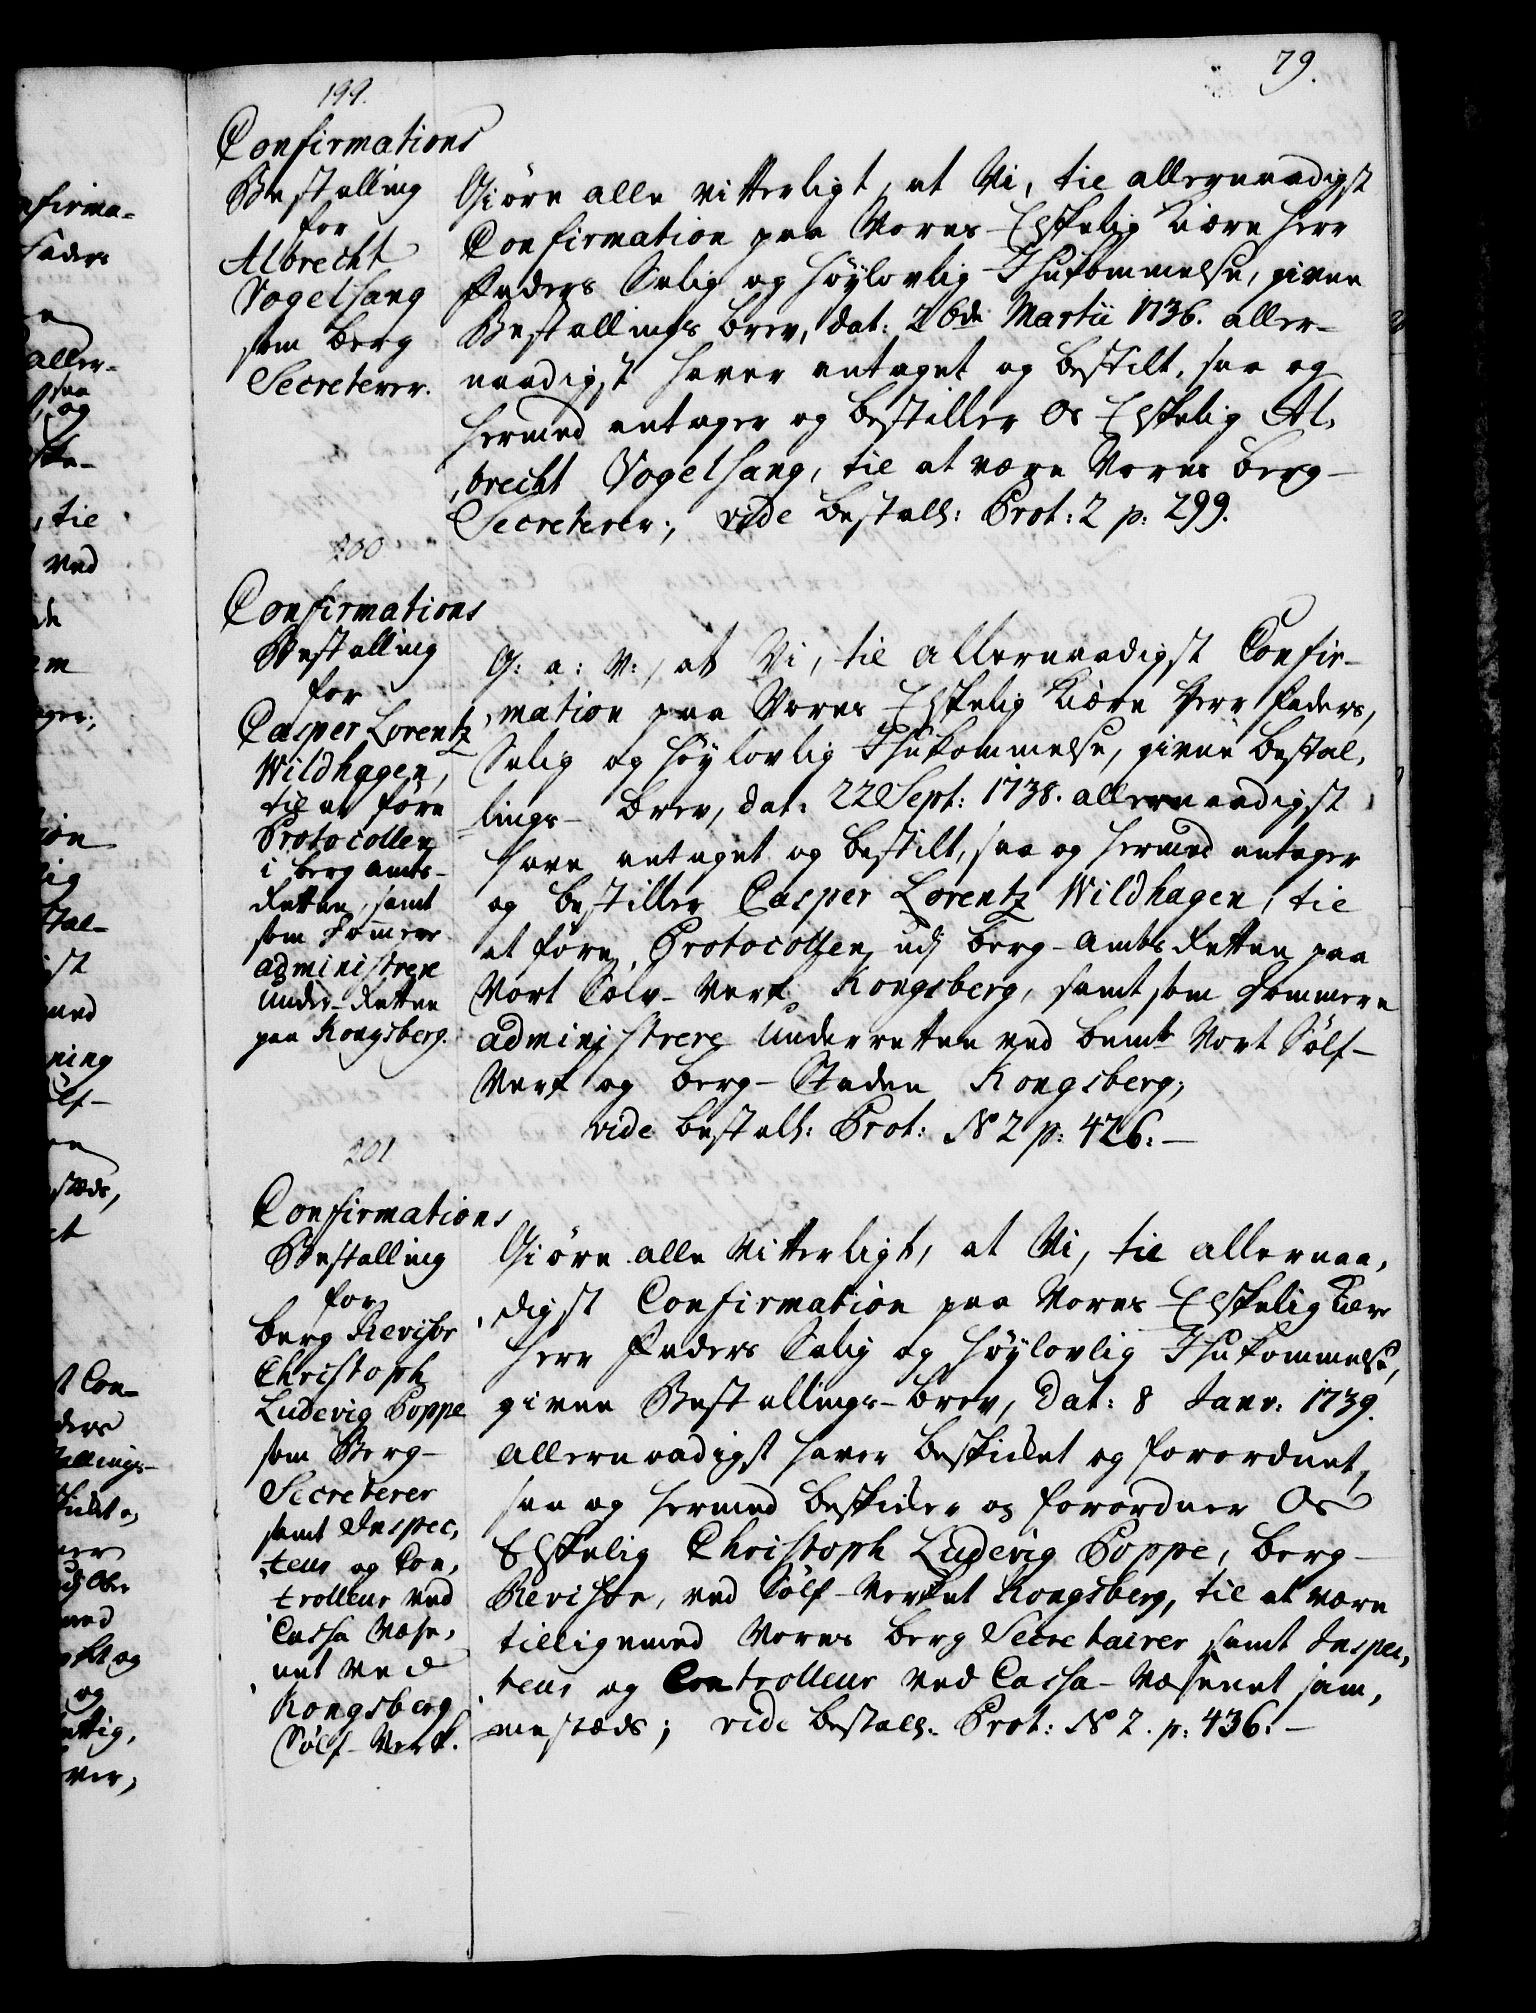 79.
199.
Confirmations
Bestalling
for
Albrecht
Vogelsang
som Berg
Secreterer.
Giöre alle vitterligt, at Vi, til allernaadigst
Confirmation paa Vores Elskelig Kiære Herr
Faders Salig og Höylovlig Ihukommelse, givne
Bestallings Brev, dat: 26de Martii 1736. aller-
naadigst haver antaget og bestilt, saa og
hermed antager og bestiller Os Elskelig Al,
,brecht Vogelsang, til at være Vores Berg-
Secreterer; vide Bestall: Prot: 2 p: 299.
200
Confirmations
Bestalling
for
Casper Lorentz
Wildhagen,
til at före
Protocollen
i Berg Amts-
Retten, samt
som Dommere
administrere
Under-Retten
paa Kongsberg.
G: a: V:, at Vi, til allernaadigst Confir-
,mation paa Vores Elskelig Kiære Herr Faders,
Salig og Höylovlig Ihukommelse, givne Bestal,
lings- Brev, dat: 22 Sept: 1738. allernaadigst
have antaget og bestilt, saa og hermed antager
og bestiller Casper Lorentz Wildhagen, til
at före Protocollen udj Berg-Amts Retten paa
Vort Sölv-Verk Kongsberg, samt som Dommere
administrere Underretten ved bemte Vort Sölf-
Verk og Berg-Staden Kongsberg;
vide Bestall: Prot: No 2 p: 426. -
201
Confirmations
Bestalling
for
Berg Revisor
Christoph
Ludevig Poppe
som Berg-
Secreterer
samt Inspec,
,teur og Con,
trolleur ved
Cassa Væse,
,net ved
Kongsberg
Sölf-Verk.
Giöre alle Vitterligt, at Vi, til allernaa,
,digst Confirmation paa Vores Elskelig Kiære
Herr Faders Salig og Höylovlig Ihukommelse,
givne Bestallings-Brev, Dat: 8 Janv: 1739.
allernaadigst haver beskikket og forordnet,
saa og hermed beskikker og forordner Os
Elskelig Christoph Ludevig Poppe, Berg-
Revisor, ved Sölf-Verket Kongsberg, til at være
tilligemed Vores Berg Secretairer samt Inspec,
,teur og Controlleur ved Cassa-Væsenet sam,
,mestæds; vide Bestall: Prot: No 2. p: 436. -